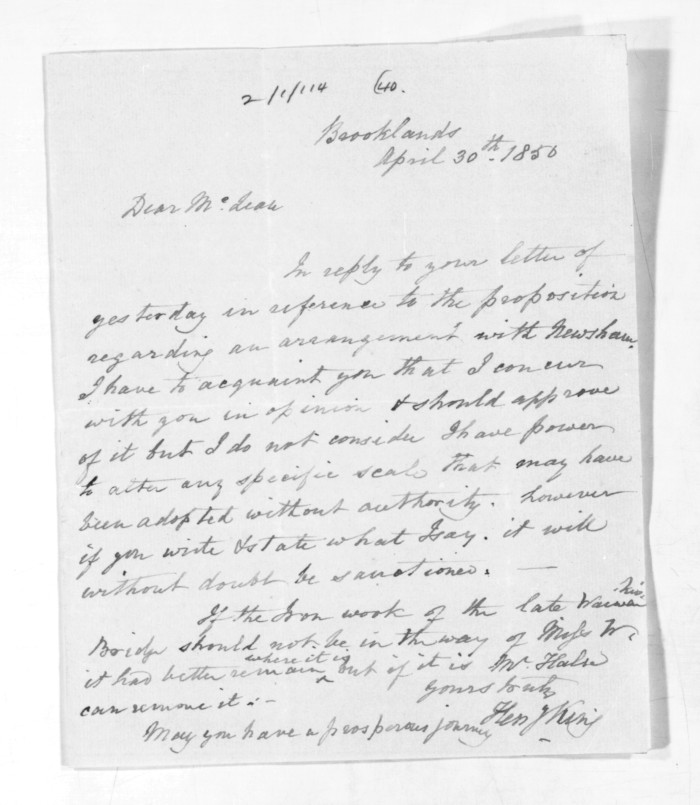 2/1/114 40.
Brooklands
April 30th. 1850
Dear McLean
In reply to your letter of
yesterday in reference to the proposition
regarding an arrangement with Newsham.
I have to acquaint you that I concur
with you in opinion & should approve
of it but I do not consider I have power
to alter any specific scale that may have
been adopted without authority. however
if you write & state what I say. it will
without doubt be sanctioned. —
If the Iron work of the late
Bridge should not be in the way of Miss W.
where it is
it had better remain ^ but if it is Mr. Halse
can remove it. –
yours truly
Heny King
May you have a prosperous journey